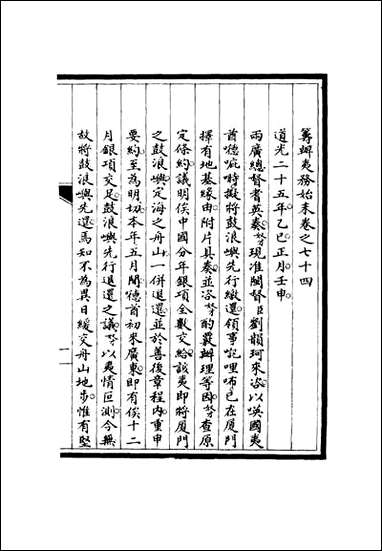 籌辦夷務始末卷之七十四
道光二十五年乙巳正月壬申
兩廣總督耆英奏。奴才現准閩督臣劉韻珂來咨。以㗆國夷
酋德庇時擬將鼓浪嶼先行繳還。領事𠸄哩布已在廈門
擇有地基緣由。附片具奏。並咨奴才酌覈辦理等因。奴才查原
定條約。議明俟中國分年銀項全數交給。該夷即將廈門
之鼓浪嶼。定海之舟山。一併退還。並於善後章程內。重申
要約。至為明切。本年五月間。德酋初來廣東。即有俟十二
月銀項交足。鼓浪嶼先行退還之議。奴才以夷情叵測。今無
故將鼓浪嶼先還。焉知不為異日緩交舟山地步。惟有堅
一